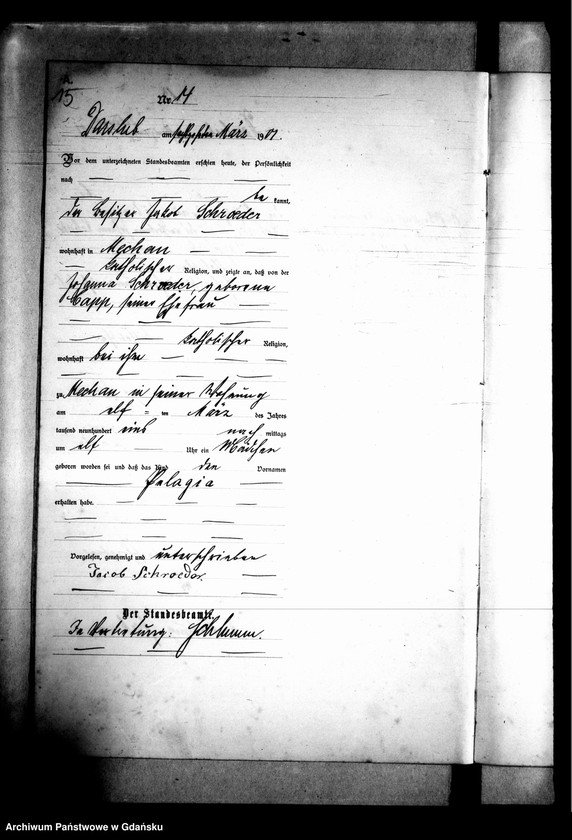 A.
15
Nr. 14
Darslub am fünfzehnten März 1901.
Vor dem unterzeichneten Standesbeamten erschien heute, der Persönlichkeit
nach
be kannt,
der Besitzer Jakob Schroeder
wohnhaft in Mechau
katholischer Religion, und zeigte an, daß von der
Johanna Schroeder, geborene
seiner Ehefrau
katholischer Religion,
wohnhaft bei ihm
zu Mechau in seiner Wohnung
am elf = ten März des Jahres
tausend neunhundert eins nach mittags
um elf Uhr ein Mädchen
geboren worden sei und daß das Kind den Vornamen
Pelagia
erhalten habe.
Vorgelesen, genehmigt und unterschrieben
Jacob Schroeder.
Der Standesbeamte
In Vertretung:
Archiwum Państwowe w Gdańsku